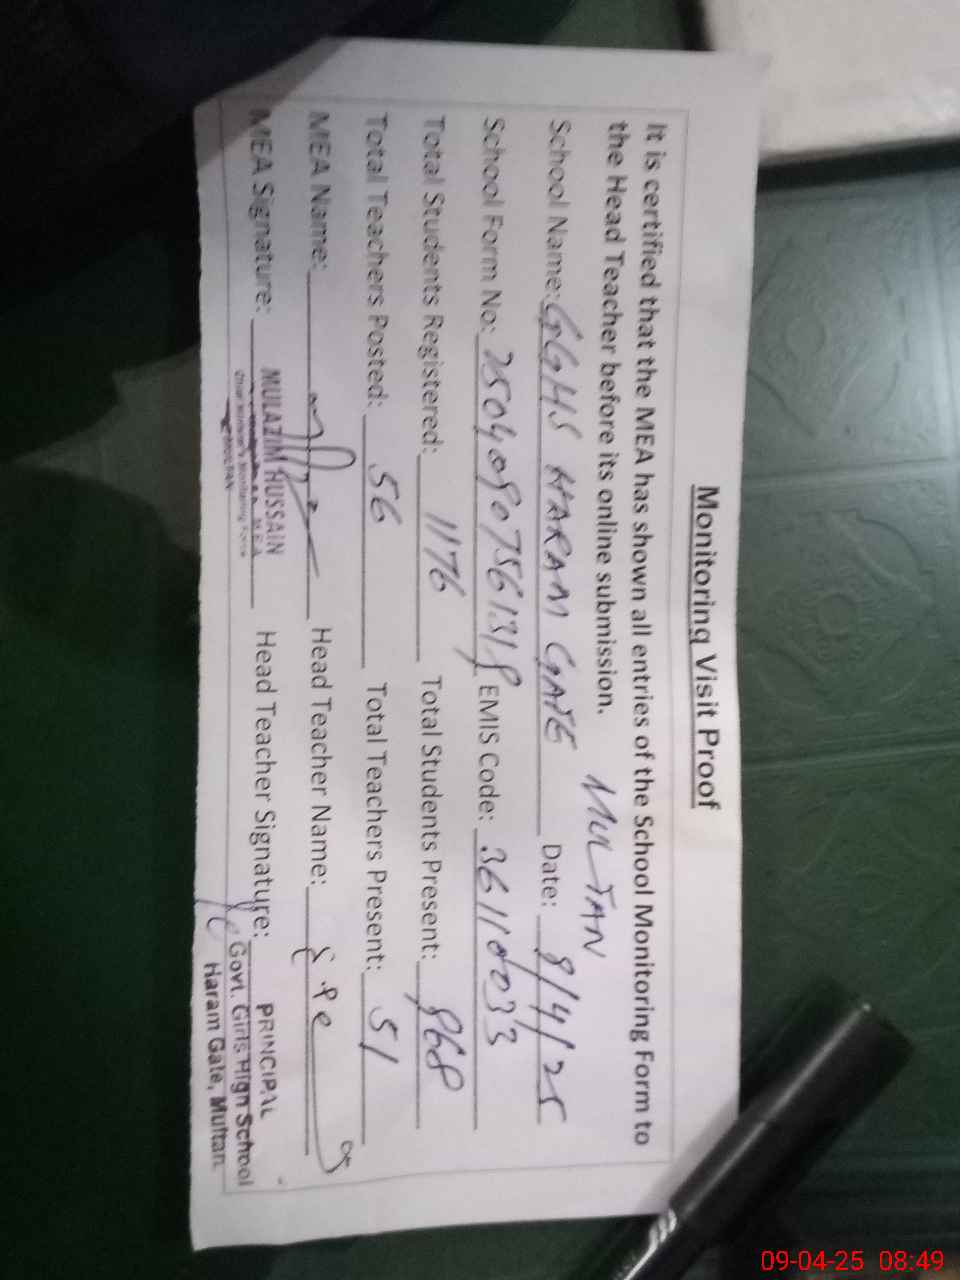 Monitoring Visit Proof
It is certified that the MEA has shown all entries of the School Monitoring Form to
the Head Teacher before its online submission.
MULTAN
School Name: GGHS HARAM GATE Date: 8/4/25
School Form No: EMIS Code: 36110033
Total Students Registered: 1176 Total Students Present: 868
Total Teachers Posted: 56 Total Teachers Present: 51
MEA Name: Head Teacher Name:
MEA Signature: Head Teacher Signature:
MULAZIM HUSSAIN
M.E.A
Chief Minister's Monitoring Force
MULTAN
PRINCIPAL
Govt. Girls High School
Haram Gate, Multan.
09-04-25 08:49